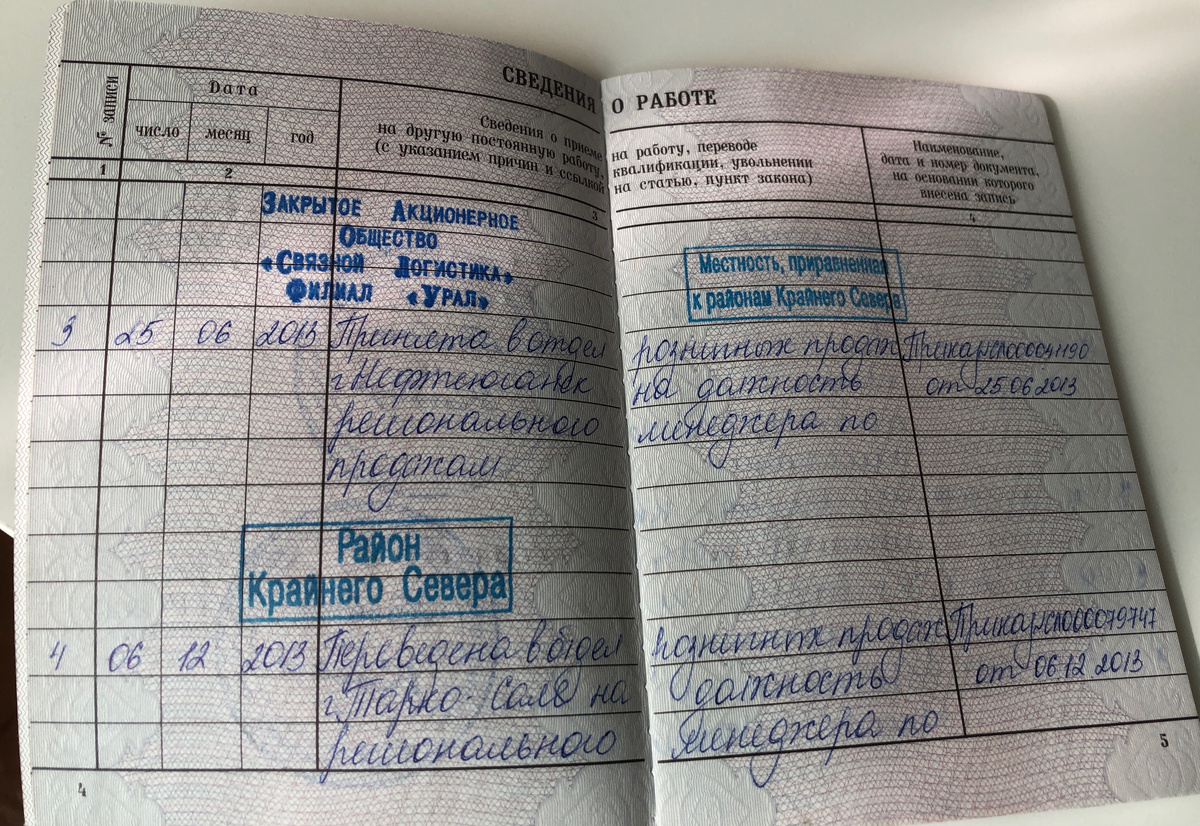 СВЕДЕНИЯ О РАБОТЕ
№ записи
Дата
число месяц год
Сведения о приеме на работу, переводе
на другую постоянную работу, квалификации, увольнении
(с указанием причин и ссылкой на статью, пункт закона)
Наименование,
дата и номер документа,
на основании которого
внесена запись
1 2 3 4
Закрытое Акционерное
Общество
«Связной Логистика»
Филиал «Урал»
Местность, приравненная
к районам Крайнего Севера
3 25 06 2013 Принята в отдел розничных продаж Приказ сл000041190
г. Нефтеюганск на должность от 25.06.2013
регионального менеджера по
продажам
Район
Крайнего Севера
4 06 12 2013 Переведена в отдел розничных продаж Приказ сл000079747
г. Тарко-Сале на должность от 06.12.2013
регионального менеджера по
4 5